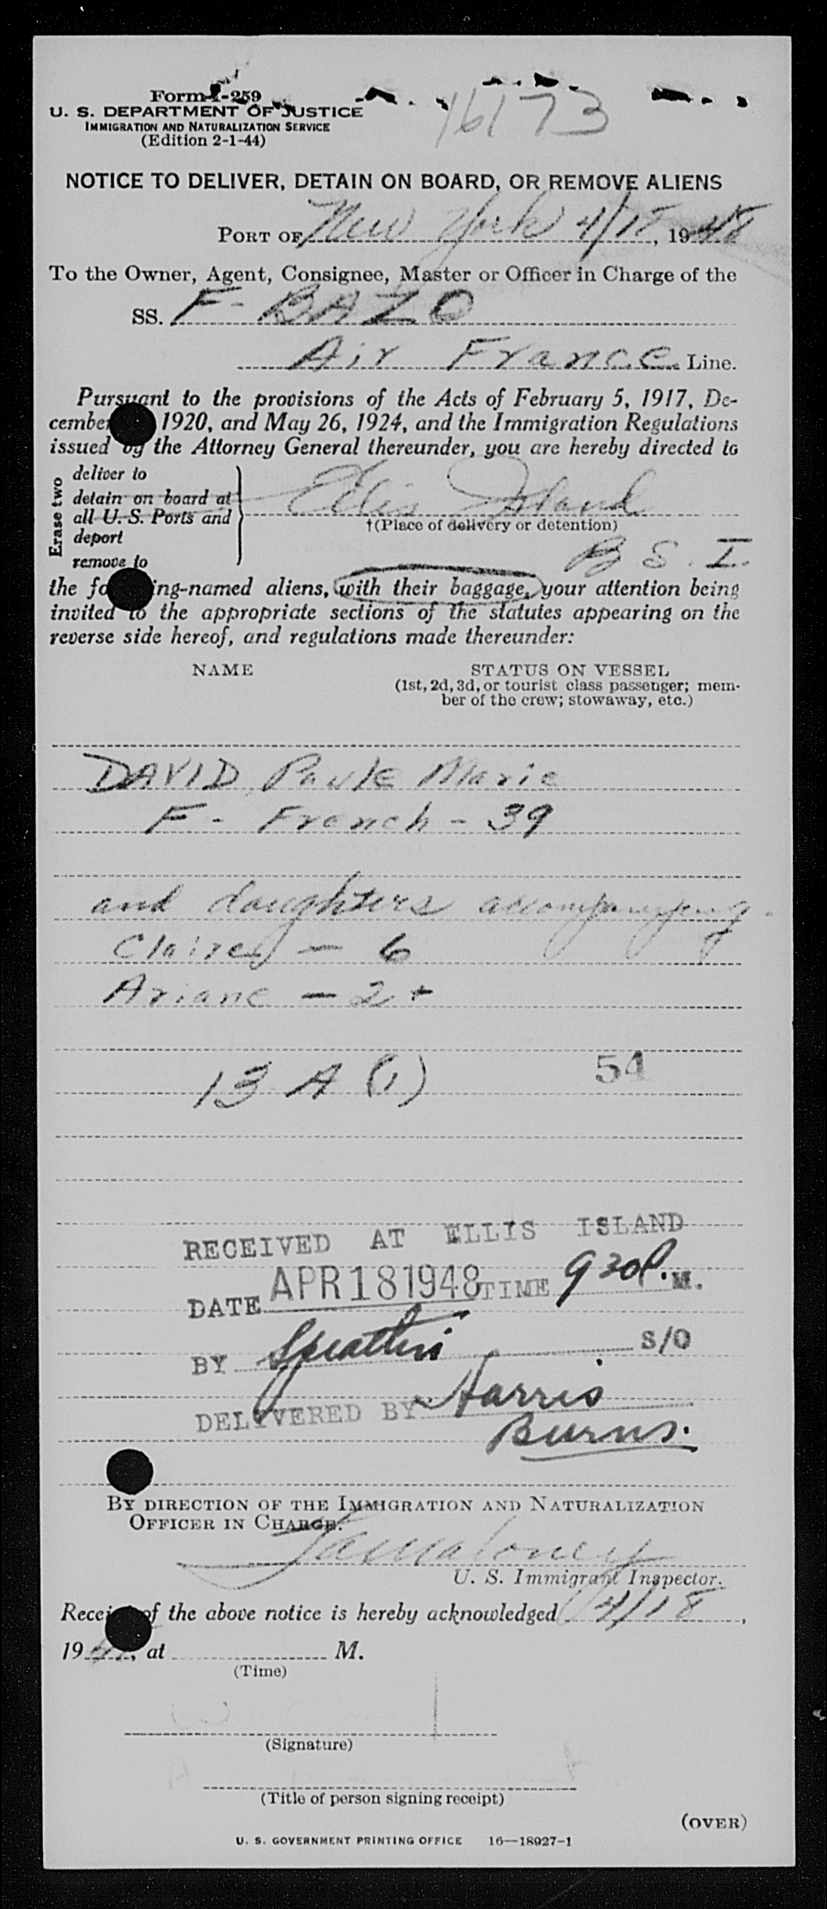 Form I-259
U. S. DEPARTMENT OF JUSTICE
IMMIGRATION AND NATURALIZATION SERVICE
(Edition 2-1-44)
16173
NOTICE TO DELIVER, DETAIN ON BOARD, OR REMOVE ALIENS
PORT OF New York 4/18, 1948
To the Owner, Agent, Consignee, Master or Officer in Charge of the
SS. F-BAZO
Air France Line.
Pursuant to the provisions of the Acts of February 5, 1917, De-
cember 1920, and May 26, 1924, and the Immigration Regulations
issued by the Attorney General thereunder, you are hereby directed to
Erase two
deliver to
detain on board at
all U. S. Ports and
deport
remove to
Ellis Island
†(Place of delivery or detention)
B S. I.
the fo ing-named aliens, with their baggage, your attention being
invited to the appropriate sections of the statutes appearing on the
reverse side hereof, and regulations made thereunder:
NAME STATUS ON VESSEL
(1st, 2d, 3d, or tourist class passenger; mem-
ber of the crew; stowaway, etc.)
DAVID Paule Marie
F - French - 39
and daughters accompanying
Claire - 6
Ariane - 2 +
13 A (1) 54
RECEIVED AT ELLIS ISLAND
DATE APR 18 1948 TIME 9 30 P. M.
BY S/O
DELIVERED BY Harris
Burns.
BY DIRECTION OF THE IMMIGRATION AND NATURALIZATION
OFFICER IN CHARGE.
U. S. Immigrant Inspector.
Receipt of the above notice is hereby acknowledged 4/18,
1948, at M.
(Time)
(Signature)
(Title of person signing receipt)
(OVER)
U. S. GOVERNMENT PRINTING OFFICE 16—18927-1